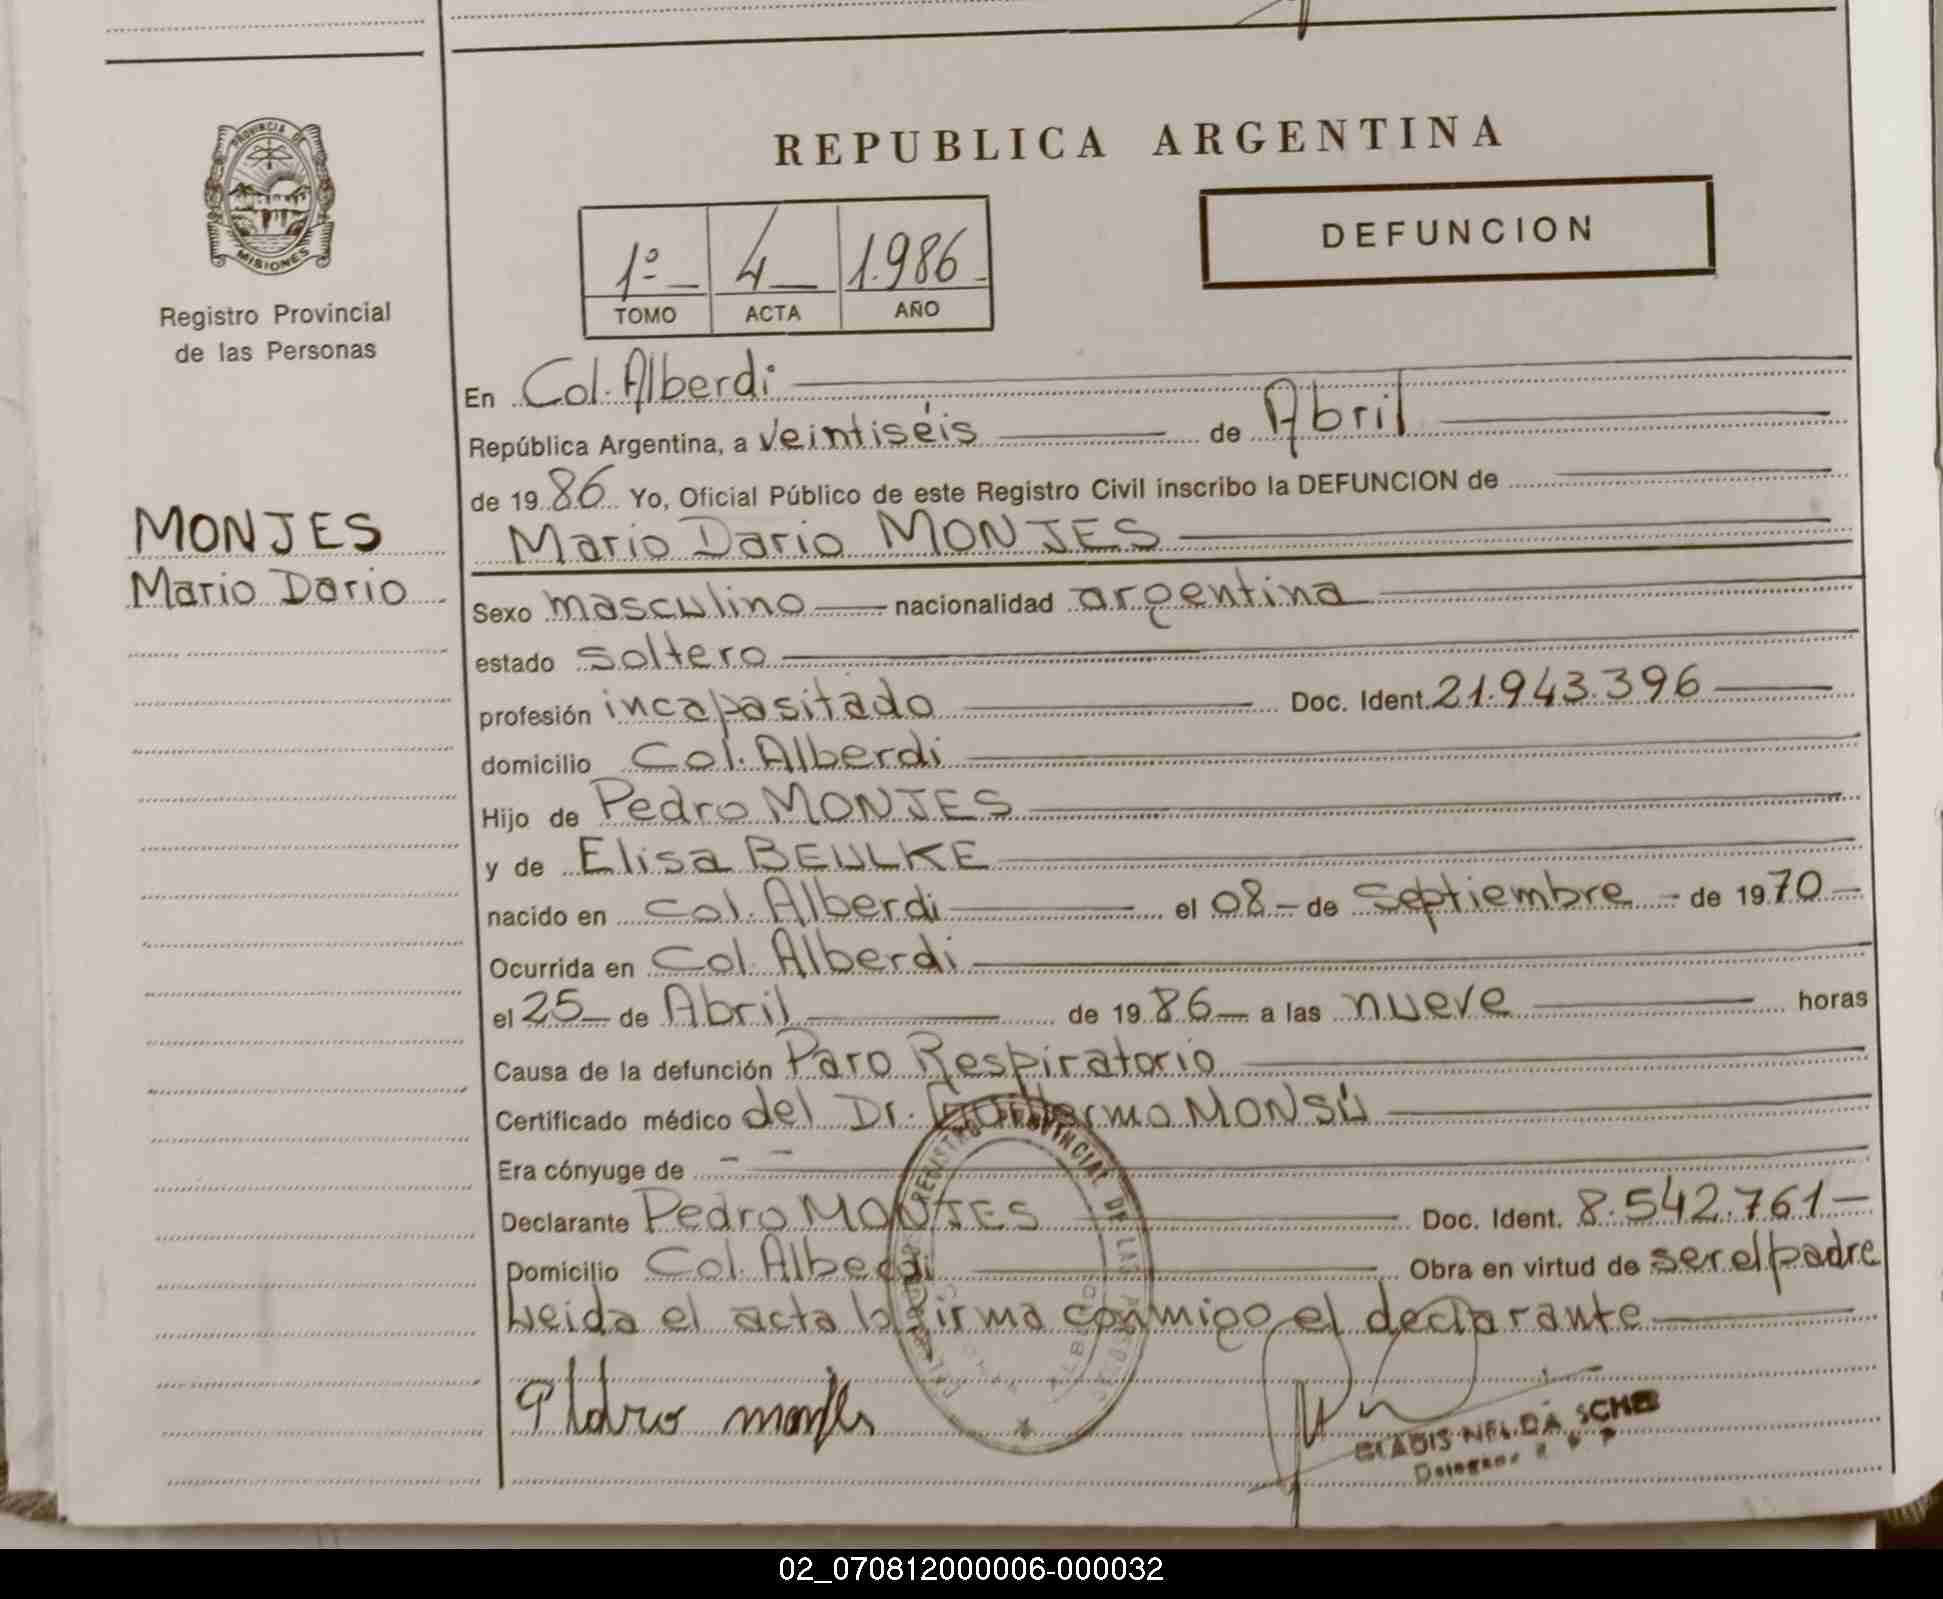 PROVINCIA DE
MISIONES
Registro Provincial
de las Personas
MONJES
Mario Dario
REPUBLICA ARGENTINA
1º 4 1.986
TOMO ACTA AÑO
DEFUNCION
En Col. Alberdi
República Argentina, a veintiséis de Abril
de 1986 Yo, Oficial Público de este Registro Civil inscribo la DEFUNCION de
Mario Dario MONJES
Sexo masculino nacionalidad argentina
estado soltero
profesión incapasitado Doc. Ident. 21.943.396
domicilio Col. Alberdi
Hijo de Pedro MONJES
y de Elisa BEULKE
nacido en Col. Alberdi el 08 de Septiembre de 1970
Ocurrida en Col. Alberdi
el 25 de Abril de 1986 a las nueve horas
Causa de la defunción Paro Respiratorio
Certificado médico del Dr. Guillermo MONSÚ
Era cónyuge de - -
Declarante Pedro MONJES Doc. Ident. 8.542.761
Domicilio Col. Alberdi Obra en virtud de ser el padre
Leida el acta la firma conmigo el declarante
REGISTRO PROVINCIAL DE LAS
GLADIS NELIDA
02_070812000006-000032